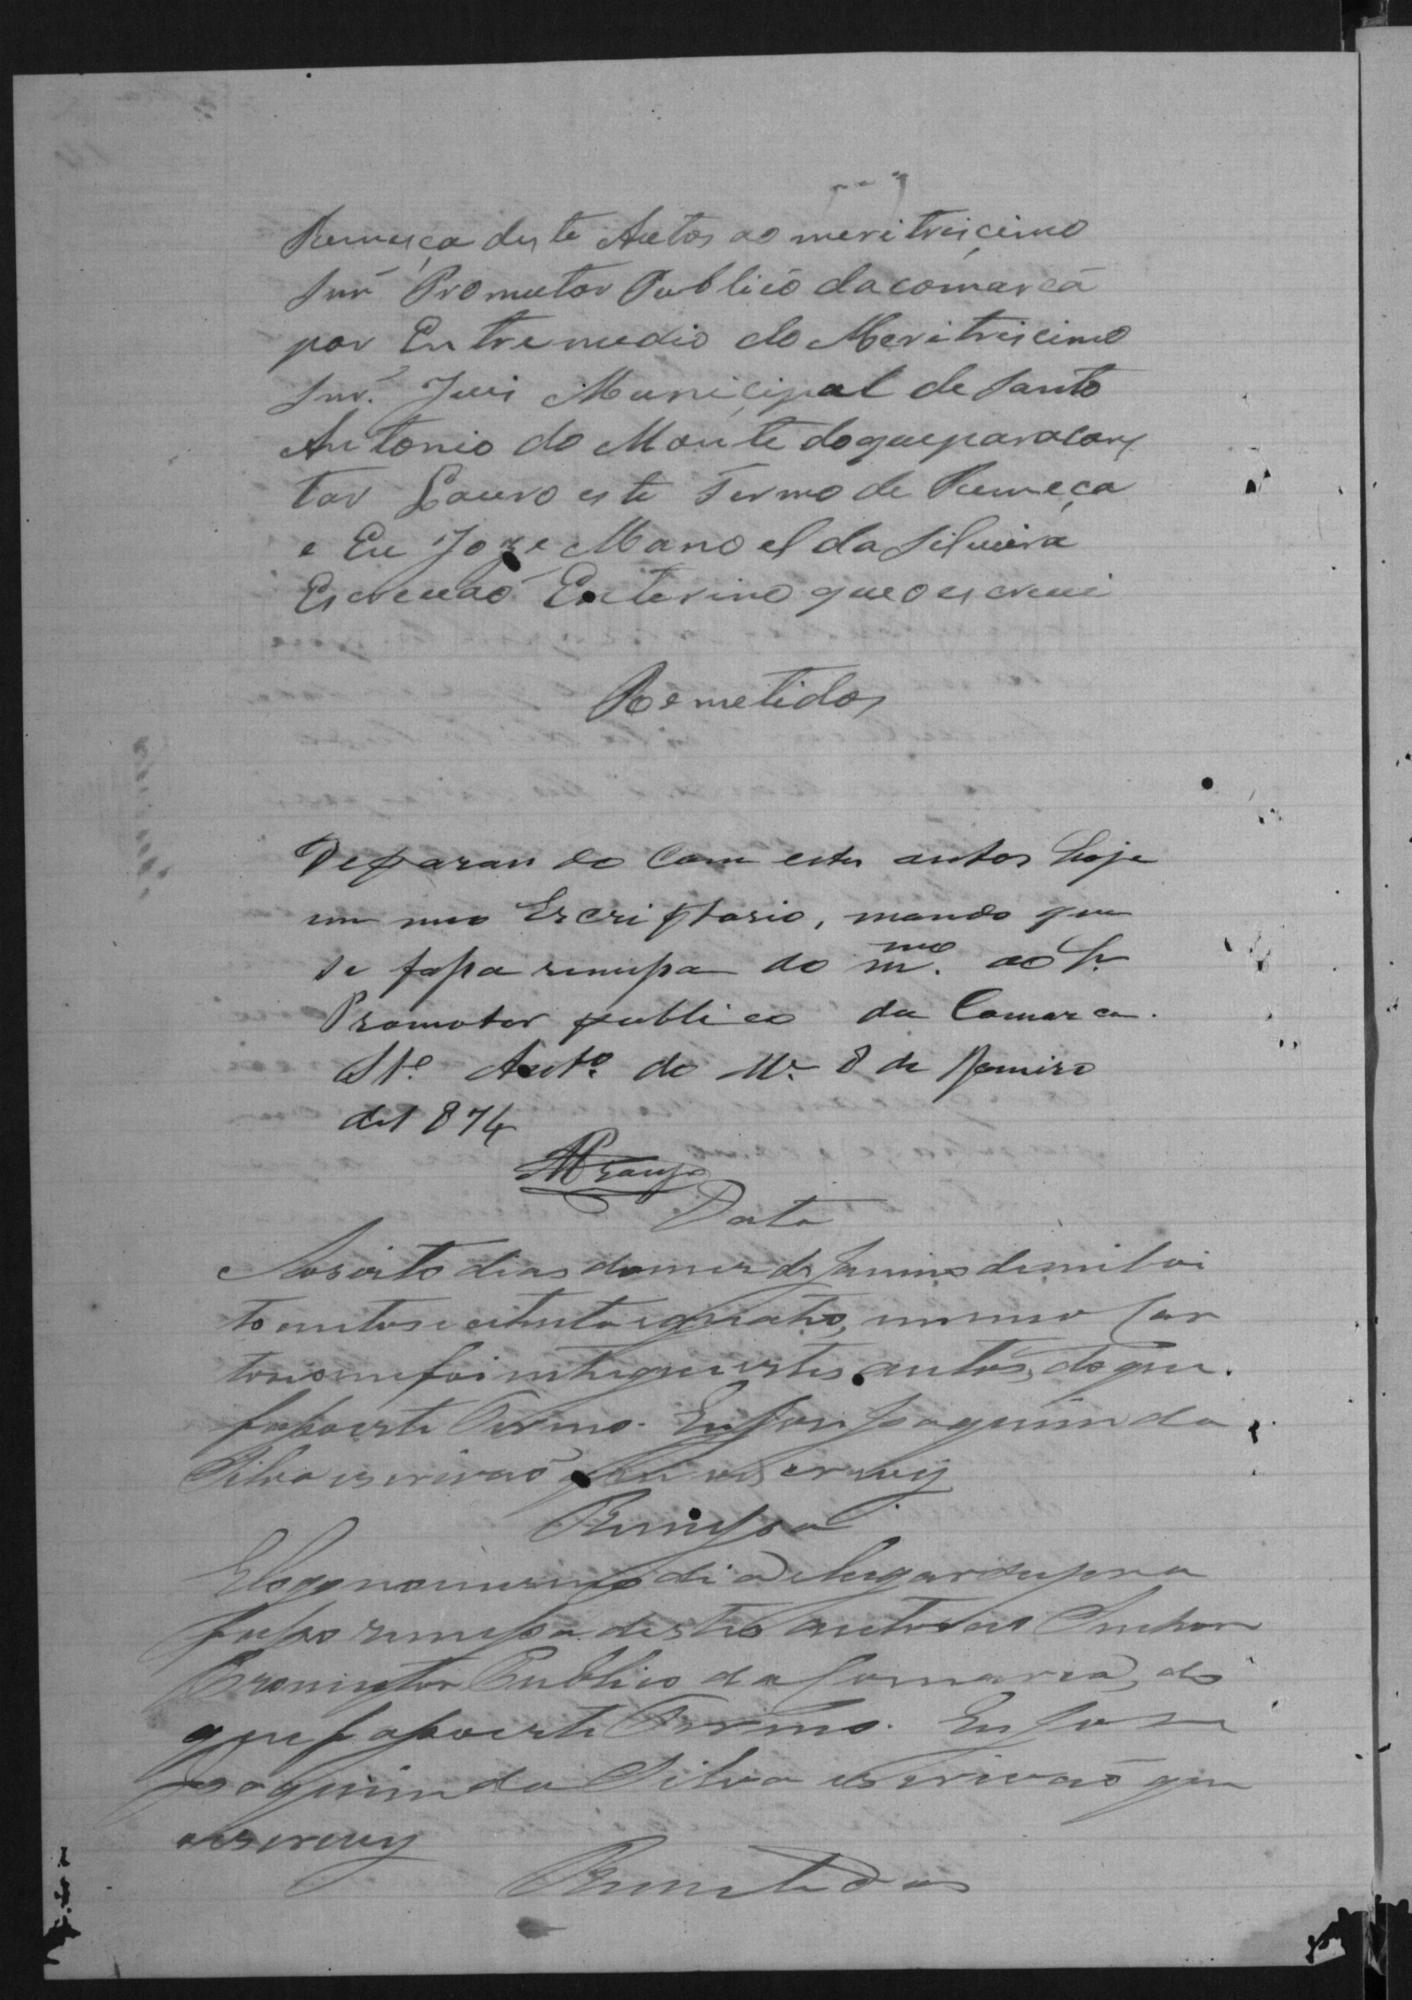 Remeça deste Autos ao meritricimo
Snr Promutor Publico da comarca
por Entremedio do Meritricimo
Snr. Juis Municipal de Santo
Antonio do Monte do que para cons
tar Lauro este Termo de Remeça
e Eu Joze Manoel da Silveira
Escrevaõ Enterino que o escrevi
Remetidos
Deparando com estes autos hoje
em meo Escriptorio, mando que
se faça remessa do mmo. ao Sr.
Promotor publico da Comarca.
Sto. Anto. do Me. 8 de Janeiro
de 1874
Araujo
Data
Aos oito dias do mes de Janeiro de mil oi
to centos e setenta e quatro, em meo Car
torio me foi entregue estes autos, do que
faço este Termo. Eu Jose Joaquim da
Silva escrivaõ que o escrevy
Remessa
E logo no mesmo dia e lugar supra
faço remessa destes autos ao Senhor
Promoptor Publico da Comarca, do
que faço este Termo. Eu Jose
Joaquim da Silva escrivaõ que
o escrevy
Remetidos